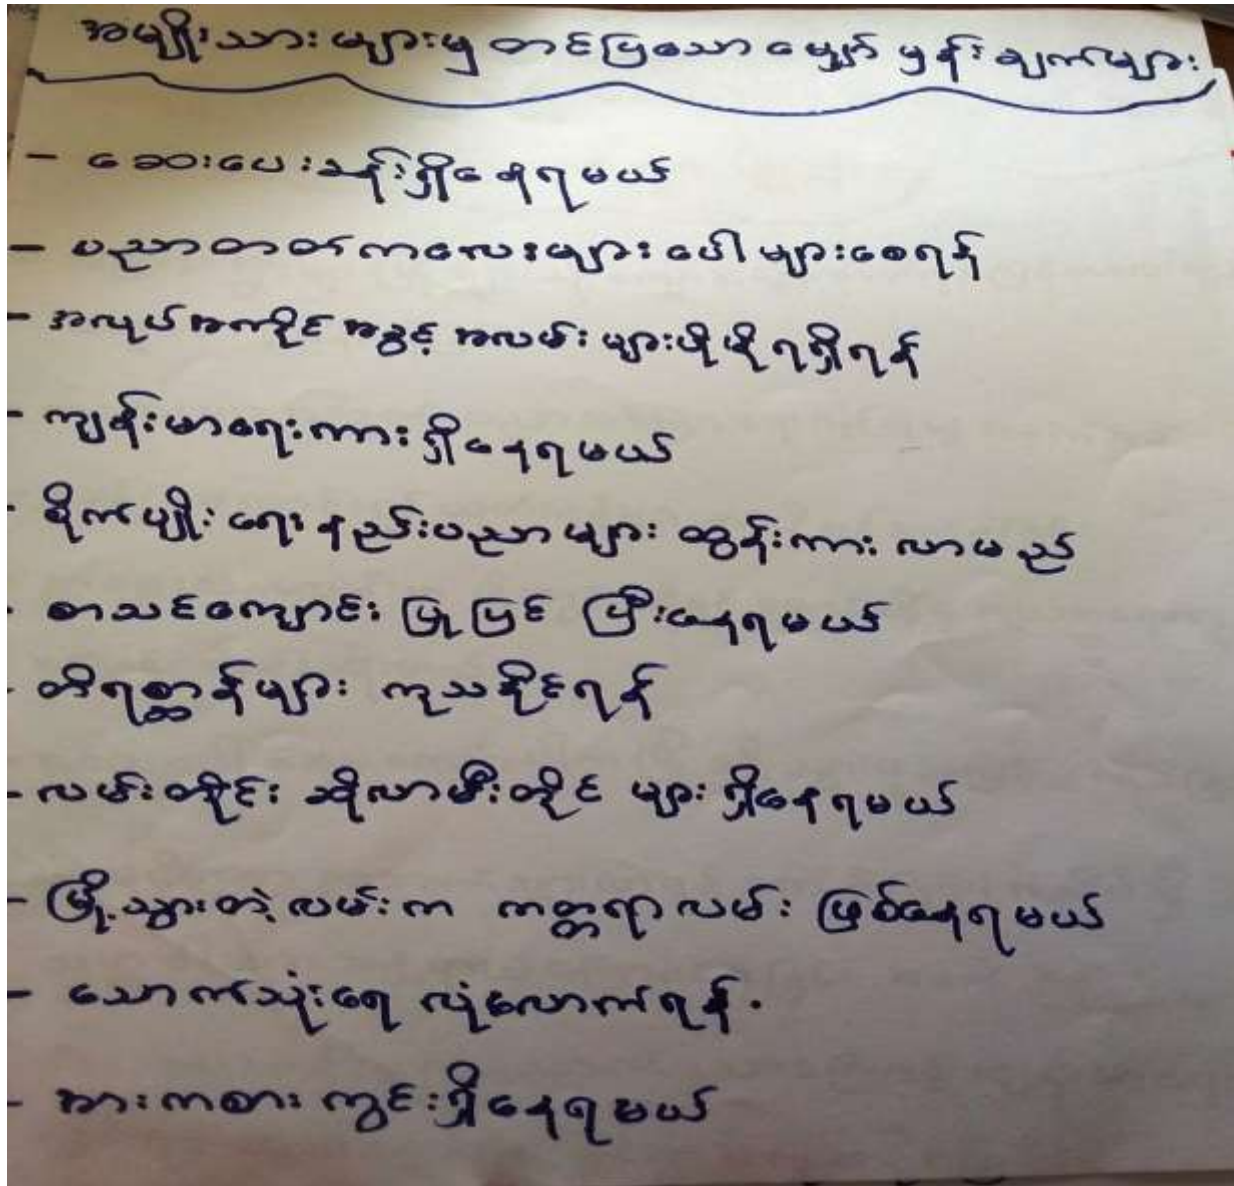 အမျိုးသားများမှ တင်ပြသော မျှော်မှန်းချက်များ
- ဆေးပေးခန်းရှိနေရမယ်
- ပညာတတ်ကလေးများပေါများစေရန်
- အလုပ်အကိုင်အခွင့်အလမ်းများပိုမိုရရှိရန်
- ကျန်းမာရေးကားရှိနေရမယ်
- စိုက်ပျိုးရေးနည်းပညာများ ထွန်းကားလာမည်
- စာသင်ကျောင်းပြုပြင်ပြီးနေရမယ်
- တိရစ္ဆာန်များ ကုသနိုင်ရန်
- လမ်းတိုင်း ဆိုလာမီးတိုင်များရှိနေရမယ်
- မြို့သွားတဲ့လမ်းက ကတ္တရာလမ်းဖြစ်နေရမယ်
- သောက်သုံးရေ လုံလောက်ရန်.
- အားကစားကွင်းရှိနေရမယ်